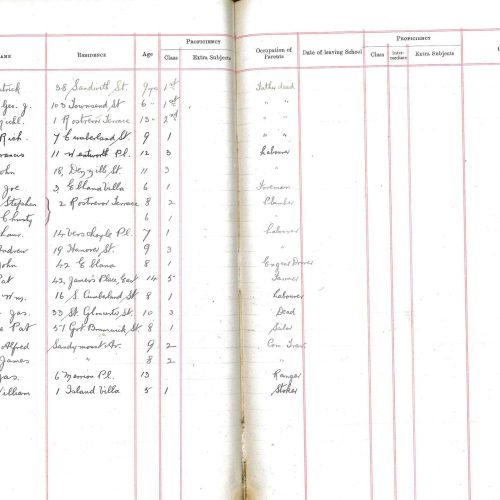 PROFICIENCY PROFICIENCY
NAME RESIDENCE Age Class Extra Subjects Occupation of Parents Date of leaving School Class Inter-mediate Extra Subjects
trick 38 Sandwith St. 9 yrs 1st Father dead
Geo. J. 103 Townsend St 6 " 1st " "
1 Rostrevor Terrace 13 " 2nd " "
Rich. 7 Cumberland St. 9 1 " "
rancis 11 Wentworth Pl. 12 3 Labourer
ohn 18, St. 11 3 "
Joe 3 Eblana Villa 6 1 Foreman
Stephen 2 Rostrevor Terrace 8 2 Plumber
Christy 6 1 "
14 Verschoyle Pl. 7 1 Labourer
ndrew 19 Hanover St. 9 3 "
John 42 Eblana 8 1 Engine Driver
Pat 42, James's Place, East 14 5 Farmer
Wm. 16 S. Cumberland St 8 1 Labourer
Jas. 33 St. Gloucester St. 10 3 Dead
Pat 57 Gt. Brunswick St. 8 1
Alfred Sandymount Av. 9 2 Com. Trav.
James " 8 2 "
Jas. 6 Merrion Pl. 13 Ranger
William 1 Island Villa 5 1 Stoker